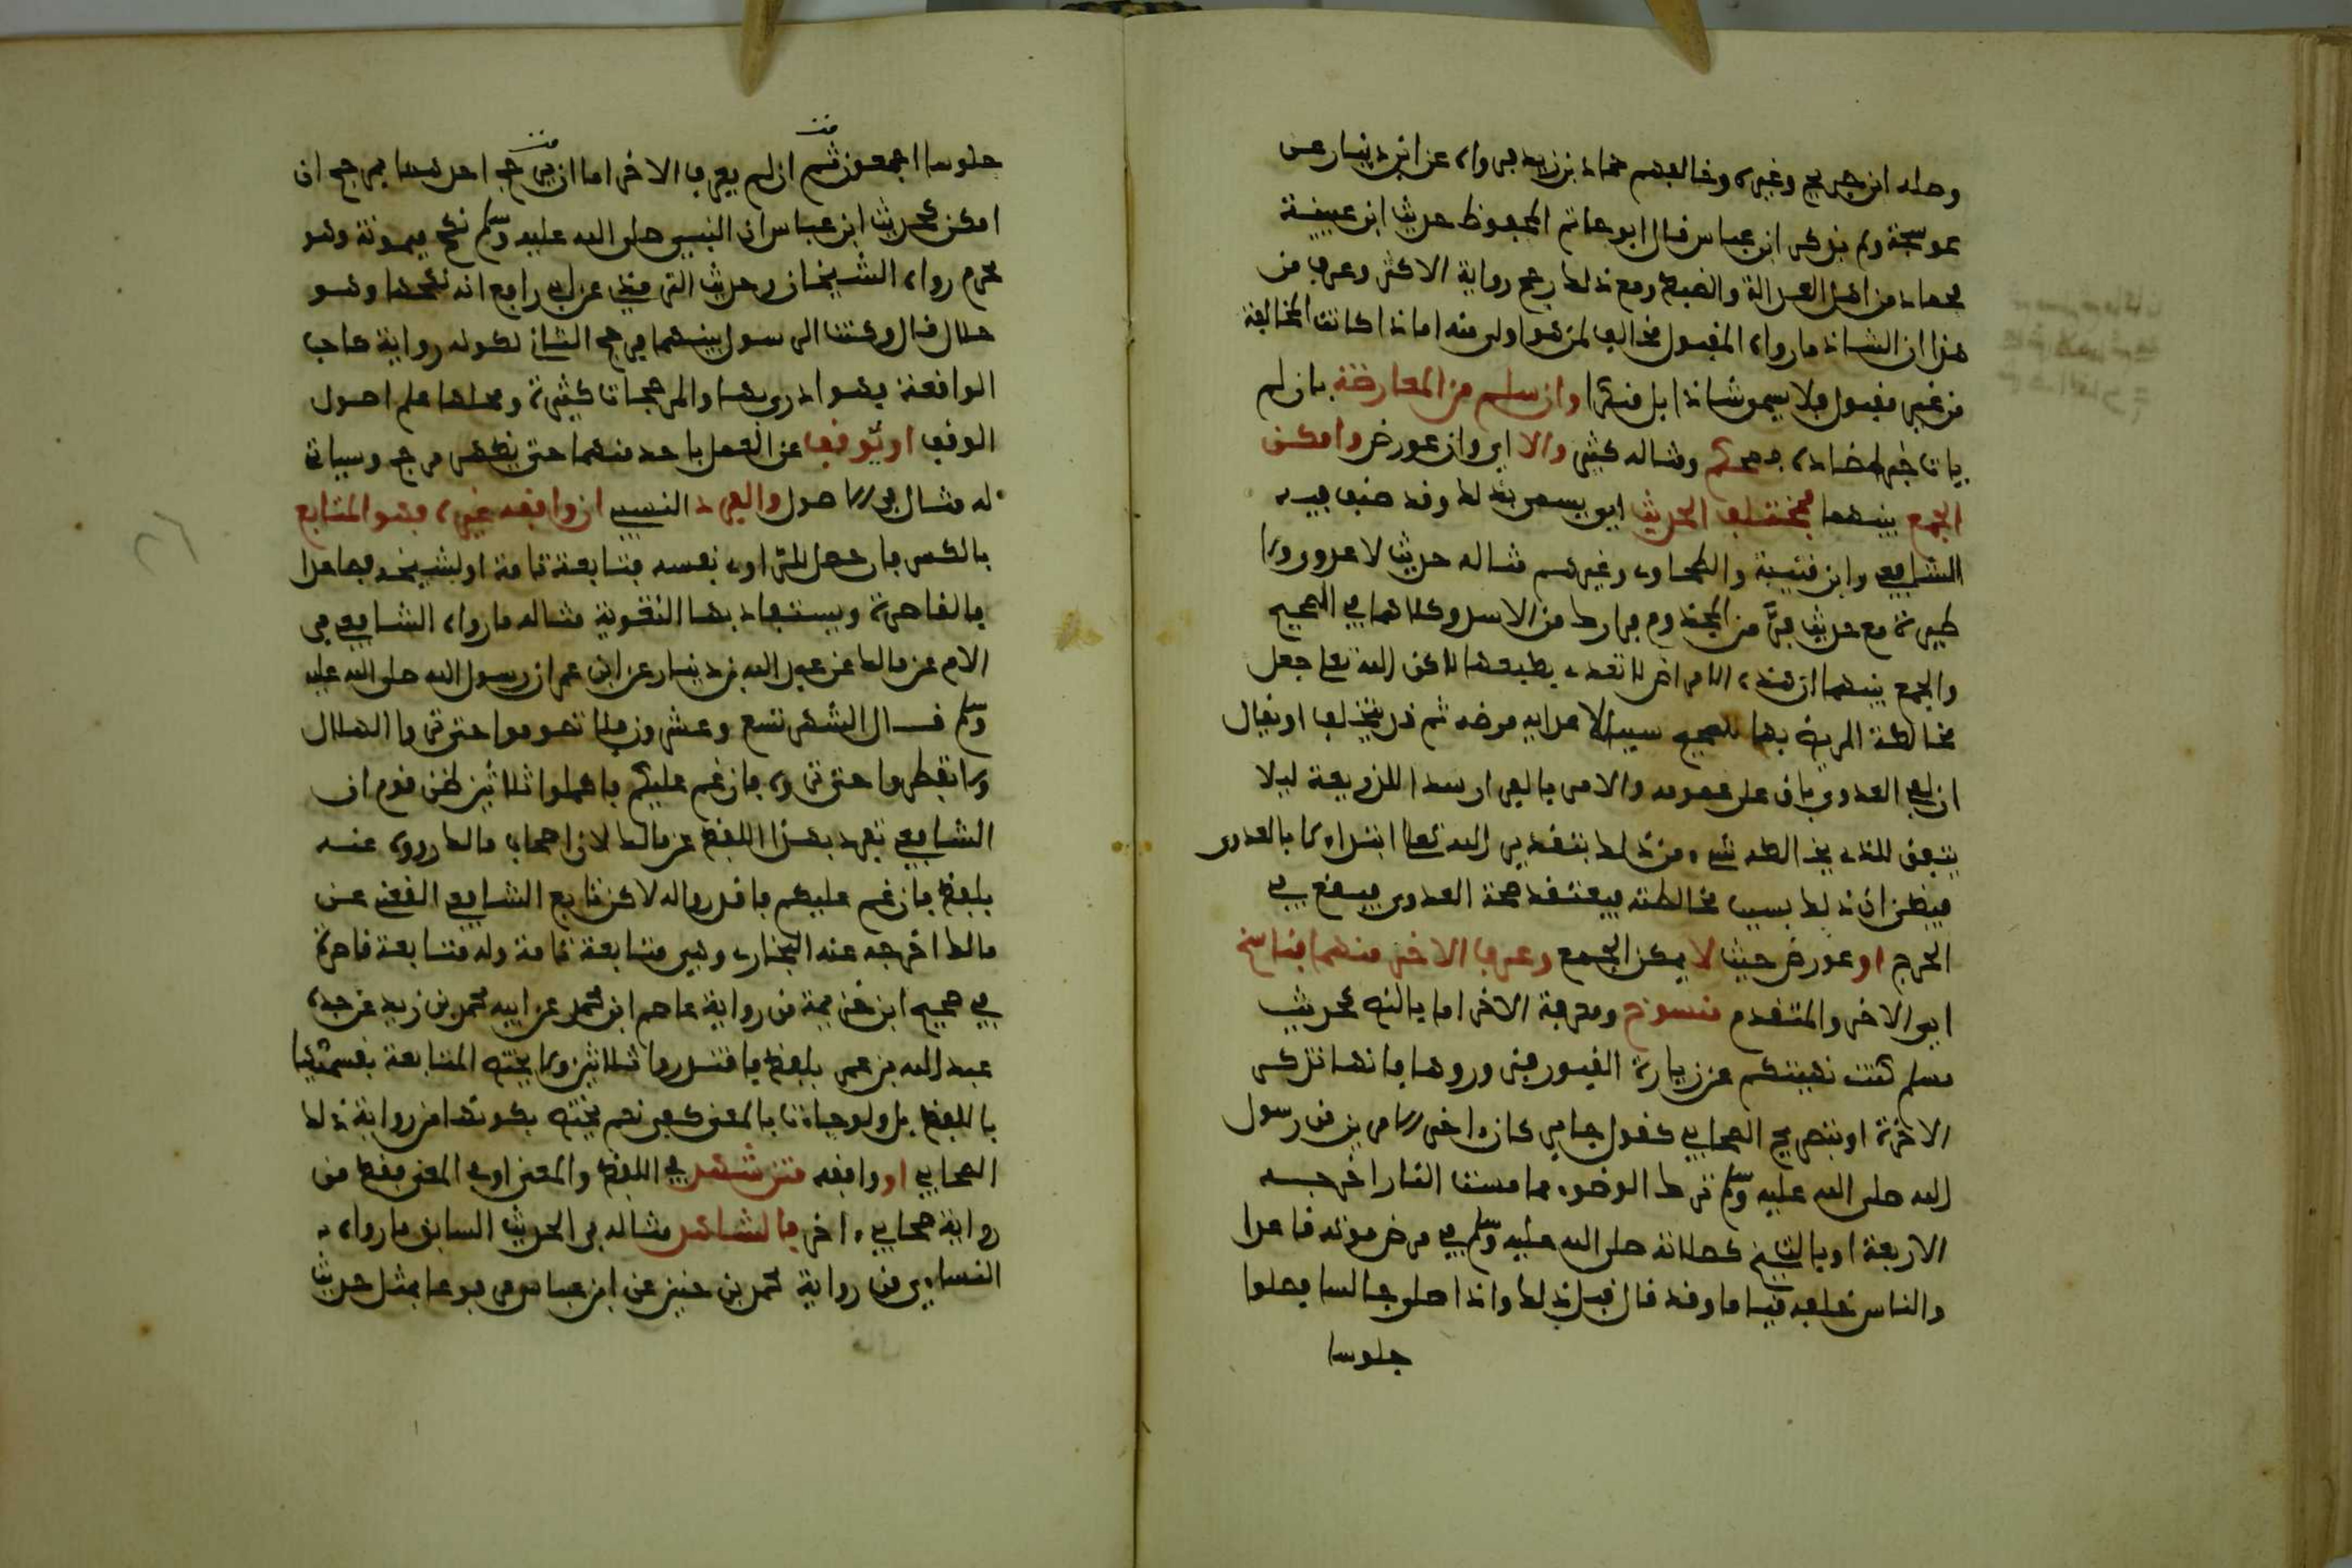 وصله ابن جريج وغيره وخالفهم حماد بن زيد فرواه عن ابن دينار عن
عوسجة ولم يذكر ابن عباس قال ابو حاتم المحفوظ حديث ابن عيينة
فحماد من اهل العدالة والضبط ومع ذلك رجح رواية الاكثر وعرف من
هذا ان الشاذ ما رواه المقبول مخالف لمن هو اولى منه اما اذا كانت المخالفة
من غير مقبول فلا يسمى شاذا بل منكرا وان سلم من المعارضة بان لم
يات خبر يضاده فمحكم ومثاله كثير والا اي وان عورض وامكن
الجمع بينهما فمختلف الحديث اي يسمى بذلك وقد صنف فيه
الشافعي وابن قتيبة والطحاوي وغيرهم مثاله حديث لا عدوى ولا
طيرة مع حديث فر من المجذوم فرارك من الاسد وكلاهما في الصحيح
والجمع بينهما ان هذه الامراض لا تعدي بطبعها لاكن الله تعا جعل
مخالطة المريض بها للصحيح سببا لاعدايه مرضه ثم قد يتخلف او يقال
ان نفي العدوى باق على عمومه والامر بالفرار سدا للذريعة ليلا
يتفق للذي يخالطه شيء من ذلك بتقدير الله تعا ابتداء لا بالعدوى
فيظن ان ذلك بسبب مخالطته فيعتقد صحة العدوى فيقع في
الحرج او عورض حيث لا يمكن الجمع وعرف الاخر منهما فناسخ
اي الاخر والمتقدم منسوخ ومعرفة الاخر اما بالنص كحديث
مسلم كنت نهيتكم عن زيارة القبور فزوروها فانها تذكر
الاخرة او بتصريح الصحابي كقول جابر كان ءاخر الامرين من رسول
الله صلى الله عليه وسلم ترك الوضوء مما مست النار اخرجه
الاربعة او بالتاريخ كصلاته صلى الله عليه وسلم في مرض موته قاعدا
والناس خلفه قياما وقد قال قبل ذلك واذا صلى جالسا فصلوا
جلوسا
جلوسا اجمعون ثم ان لم يعرف الاخر اما ان يرجح احدهما بمرجح ان
امكن كحديث ابن عباس ان النبي صلى الله عليه وسلم نكح ميمونة وهو
محرم رواه الشيخان وحديث الترمذي عن ابي رافع انه نكحها وهو
حلال قال وكنت الرسول بينهما فرجح الثاني لكونه رواية صاحب
الواقعة فهو ادرى بها والمرجحات كثيرة ومحلها علم اصول
الفقه او يوقف عن العمل باحد منهما حتى يظهر مرجح وسياتي
له مثال في الاصول والفرد النسبي ان وافقه غيره فهو المتابع
بالكسر فان حصل للراوي نفسه فمتابعة تامة او لشيخه فصاعدا
فالقاصرة ويستفاد بها التقوية مثاله ما رواه الشافعي في
الام عن مالك عن عبد الله بن دينار عن ابن عمر ان رسول الله صلى الله عليه
وسلم قال الشهر تسع وعشرون فلا تصوموا حتى تروا الهلال
ولا تفطروا حتى تروه فان غم عليكم فاكملوا ثلاثين ظن قوم ان
الشافعي تفرد بهذا اللفظ عن مالك لان اصحاب مالك رووه عنه
بلفظ فان غم عليكم فاقدروا له لاكن تابع الشافعي القعنبي عن
مالك اخرجه عنه البخاري وهي متابعة تامة وله متابعة قاصرة
في صحيح ابن خزيمة من رواية عاصم ابن محمد عن ابيه محمد بن زيد عن جده
عبد الله بن عمر بلفظ فاقدروا ثلاثين ولا يختص المتابعة بقسميها
باللفظ بل ولو جاءت بالمعنى كفى نعم يختص بكونها من رواية ذلك
الصحابي او وافقه متن يشبهه في اللفظ والمعنى او في المعنى فقط من
رواية صحابي ءاخر فالشاهد مثاله في الحديث السابق ما رواه
النساءي من رواية محمد بن حنين عن ابن عباس مرفوعا بمثل حديث